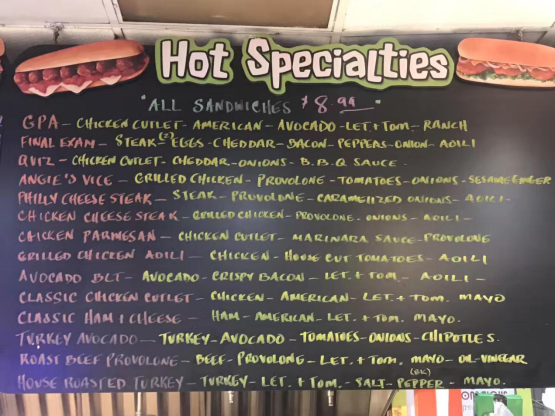 Hot Specialties
"ALL SANDWICHES $8.99"
GPA - CHICKEN CUTLET - AMERICAN - AVOCADO - LET. + TOM. - RANCH
FINAL EXAM - STEAK - (2) EGGS - CHEDDAR - BACON - PEPPERS - ONION - AOILI
QUIZ - CHICKEN CUTLET - CHEDDAR - ONIONS - B.B.Q SAUCE.
ANGIE'S VICE - GRILLED CHICKEN - PROVOLONE - TOMATOES - ONIONS - SESAME GINGER
PHILLY CHEESE STEAK - STEAK - PROVOLONE - CARAMELIZED ONIONS - AOILI -
CHICKEN CHEESE STEAK - GRILLED CHICKEN - PROVOLONE. ONIONS - AOILI -
CHICKEN PARMESAN - CHICKEN CUTLET - MARINARA SAUCE - PROVOLONE
GRILLED CHICKEN AOILI - CHICKEN - HOUSE CUT TOMATOES - AOILI
AVOCADO BLT - AVOCADO - CRISPY BACON - LET. + TOM. - AOILI -
CLASSIC CHICKEN CUTLET - CHICKEN - AMERICAN - LET. + TOM. MAYO
CLASSIC HAM & CHEESE - HAM - AMERICAN - LET. + TOM. MAYO.
TURKEY AVOCADO - TURKEY - AVOCADO - TOMATOES - ONIONS - CHIPOTLES.
ROAST BEEF PROVOLONE - BEEF - PROVOLONE - LET. + TOM. MAYO - (OR) OIL - VINEGAR
HOUSE ROASTED TURKEY - TURKEY - LET. + TOM. - SALT - PEPPER - MAYO.